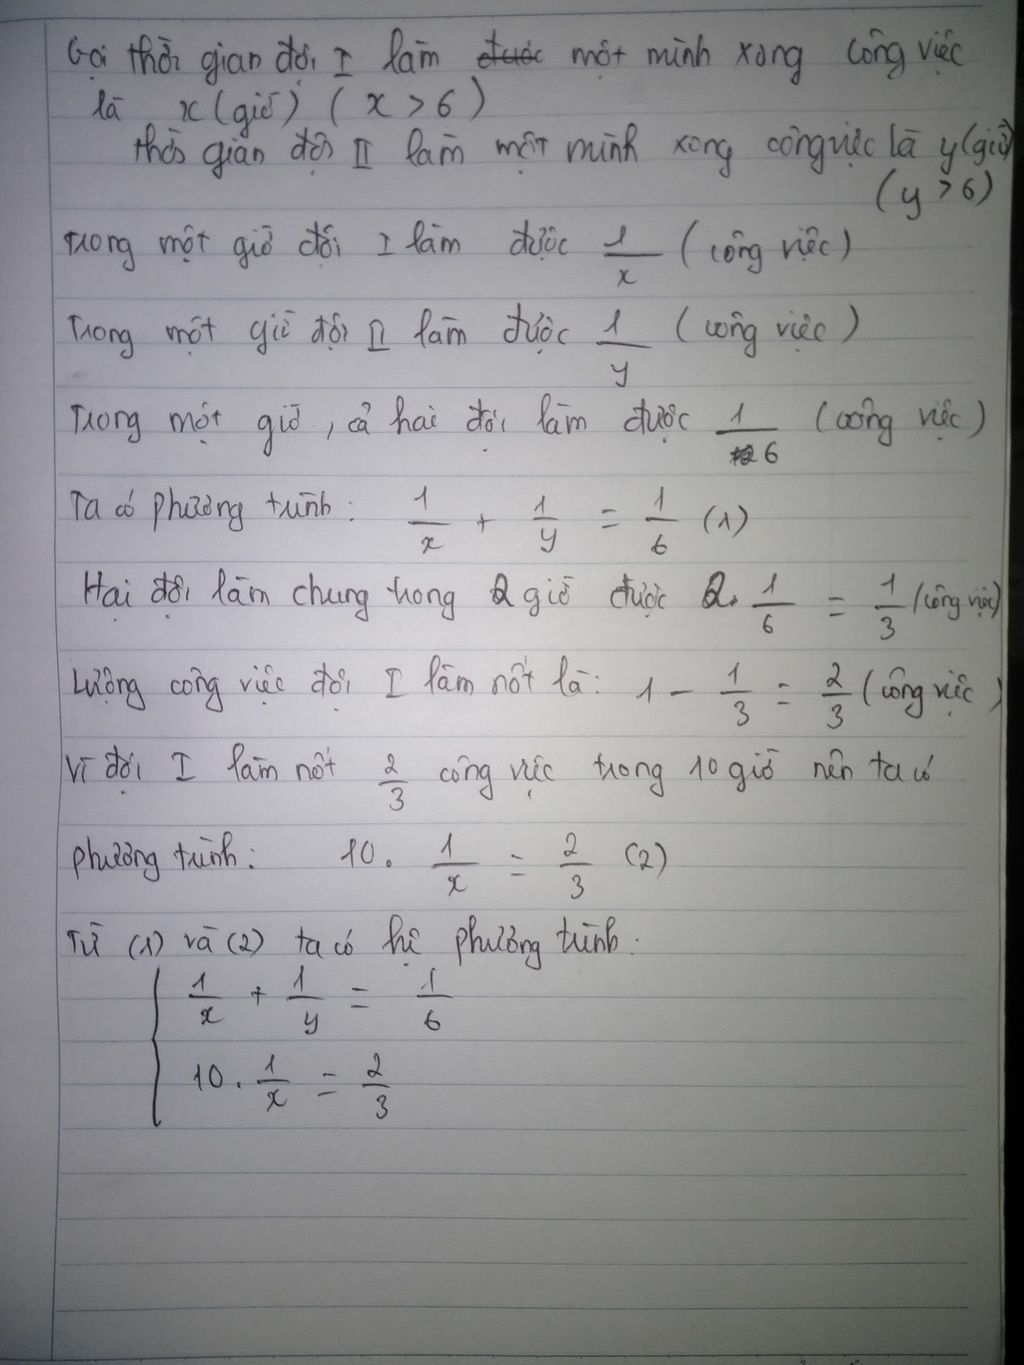 Gọi thời gian đội I làm được một mình xong công việc
là x (giờ) ( x > 6 )
thời gian đội II làm một mình xong công việc là y (giờ)
( y > 6 )
Trong một giờ đội I làm được 1/x (công việc)
Trong một giờ đội II làm được 1/y (công việc)
Trong một giờ, cả hai đội làm được 1/6 (công việc)
Ta có phương trình: 1/x + 1/y = 1/6 (1)
Hai đội làm chung trong 2 giờ được 2. 1/6 = 1/3 (công việc)
Lượng công việc đội I làm nốt là: 1 - 1/3 = 2/3 (công việc)
Vì đội I làm nốt 2/3 công việc trong 10 giờ nên ta có
phương trình: 10. 1/x = 2/3 (2)
Từ (1) và (2) ta có hệ phương trình:
1/x + 1/y = 1/6
10. 1/x = 2/3